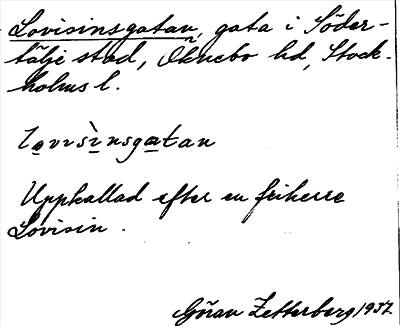 Lovisinsgatan, gata i Söder-
tälje stad, Öknebo hd, Stock-
holms l.
lovisìnsgatan
Uppkallad efter en friherre
Lovisin.
Göran Zetterberg 1937